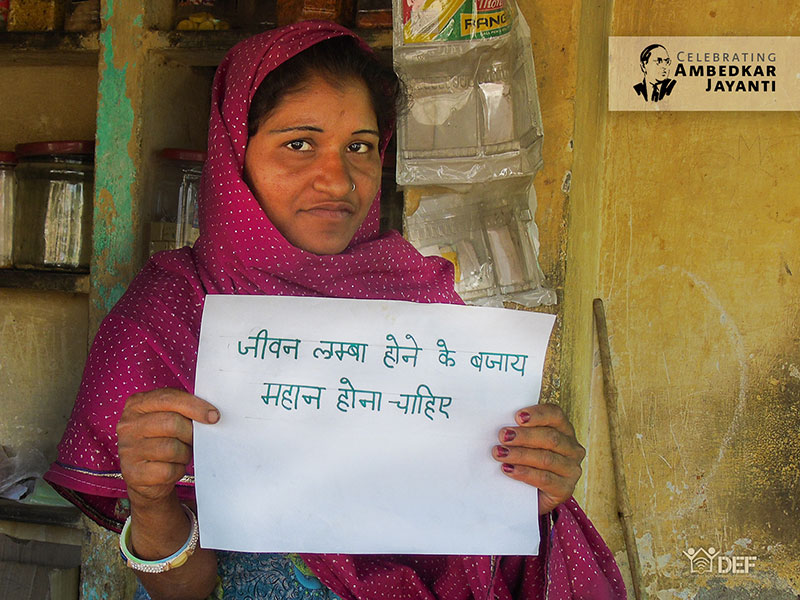 RANG
CELEBRATING
AMBEDKAR
JAYANTI
जीवन लम्बा होने के बजाय
महान होना चाहिए
DEF